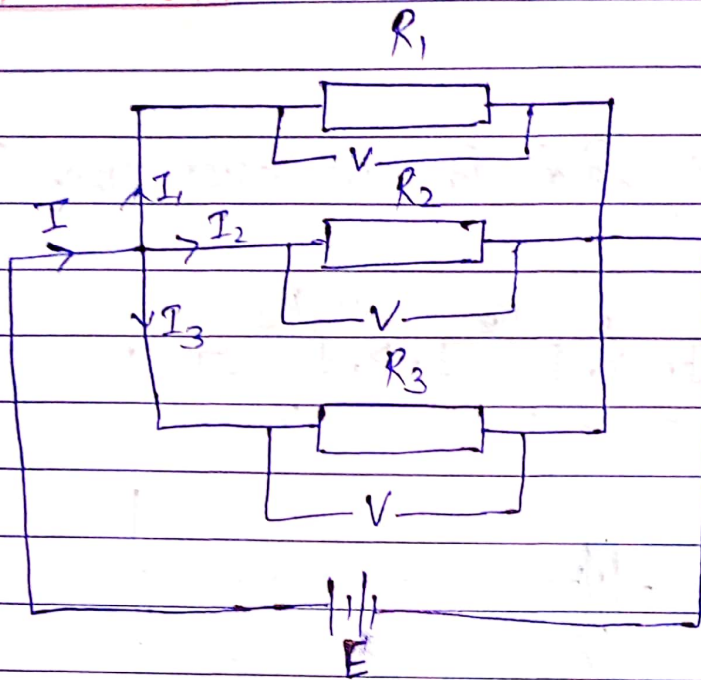 R₁
V
I₁
R₂
I
I₂
V
I₃
R₃
V
E